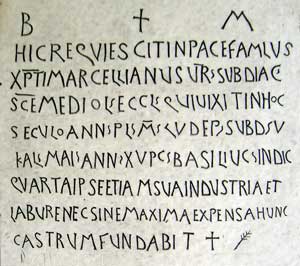 B ✝ M
HICREQVIESCITINPACEFAMLVS
XPTIMARCELLIANUSVRSSUBDIAC
SCEMEDIOLECCLEQVIVIXITINHOC
SECVLOANNSPLSMSLVDEPSSUBDSV
KALSMAISANNSXVPCSBASILIVCSINDIC
QVARTAIPSEETIAMSVAINDUSTRIAET
LABURENECSINEMAXIMAEXPENSAHUNC
CASTRUMFUNDABIT ✝